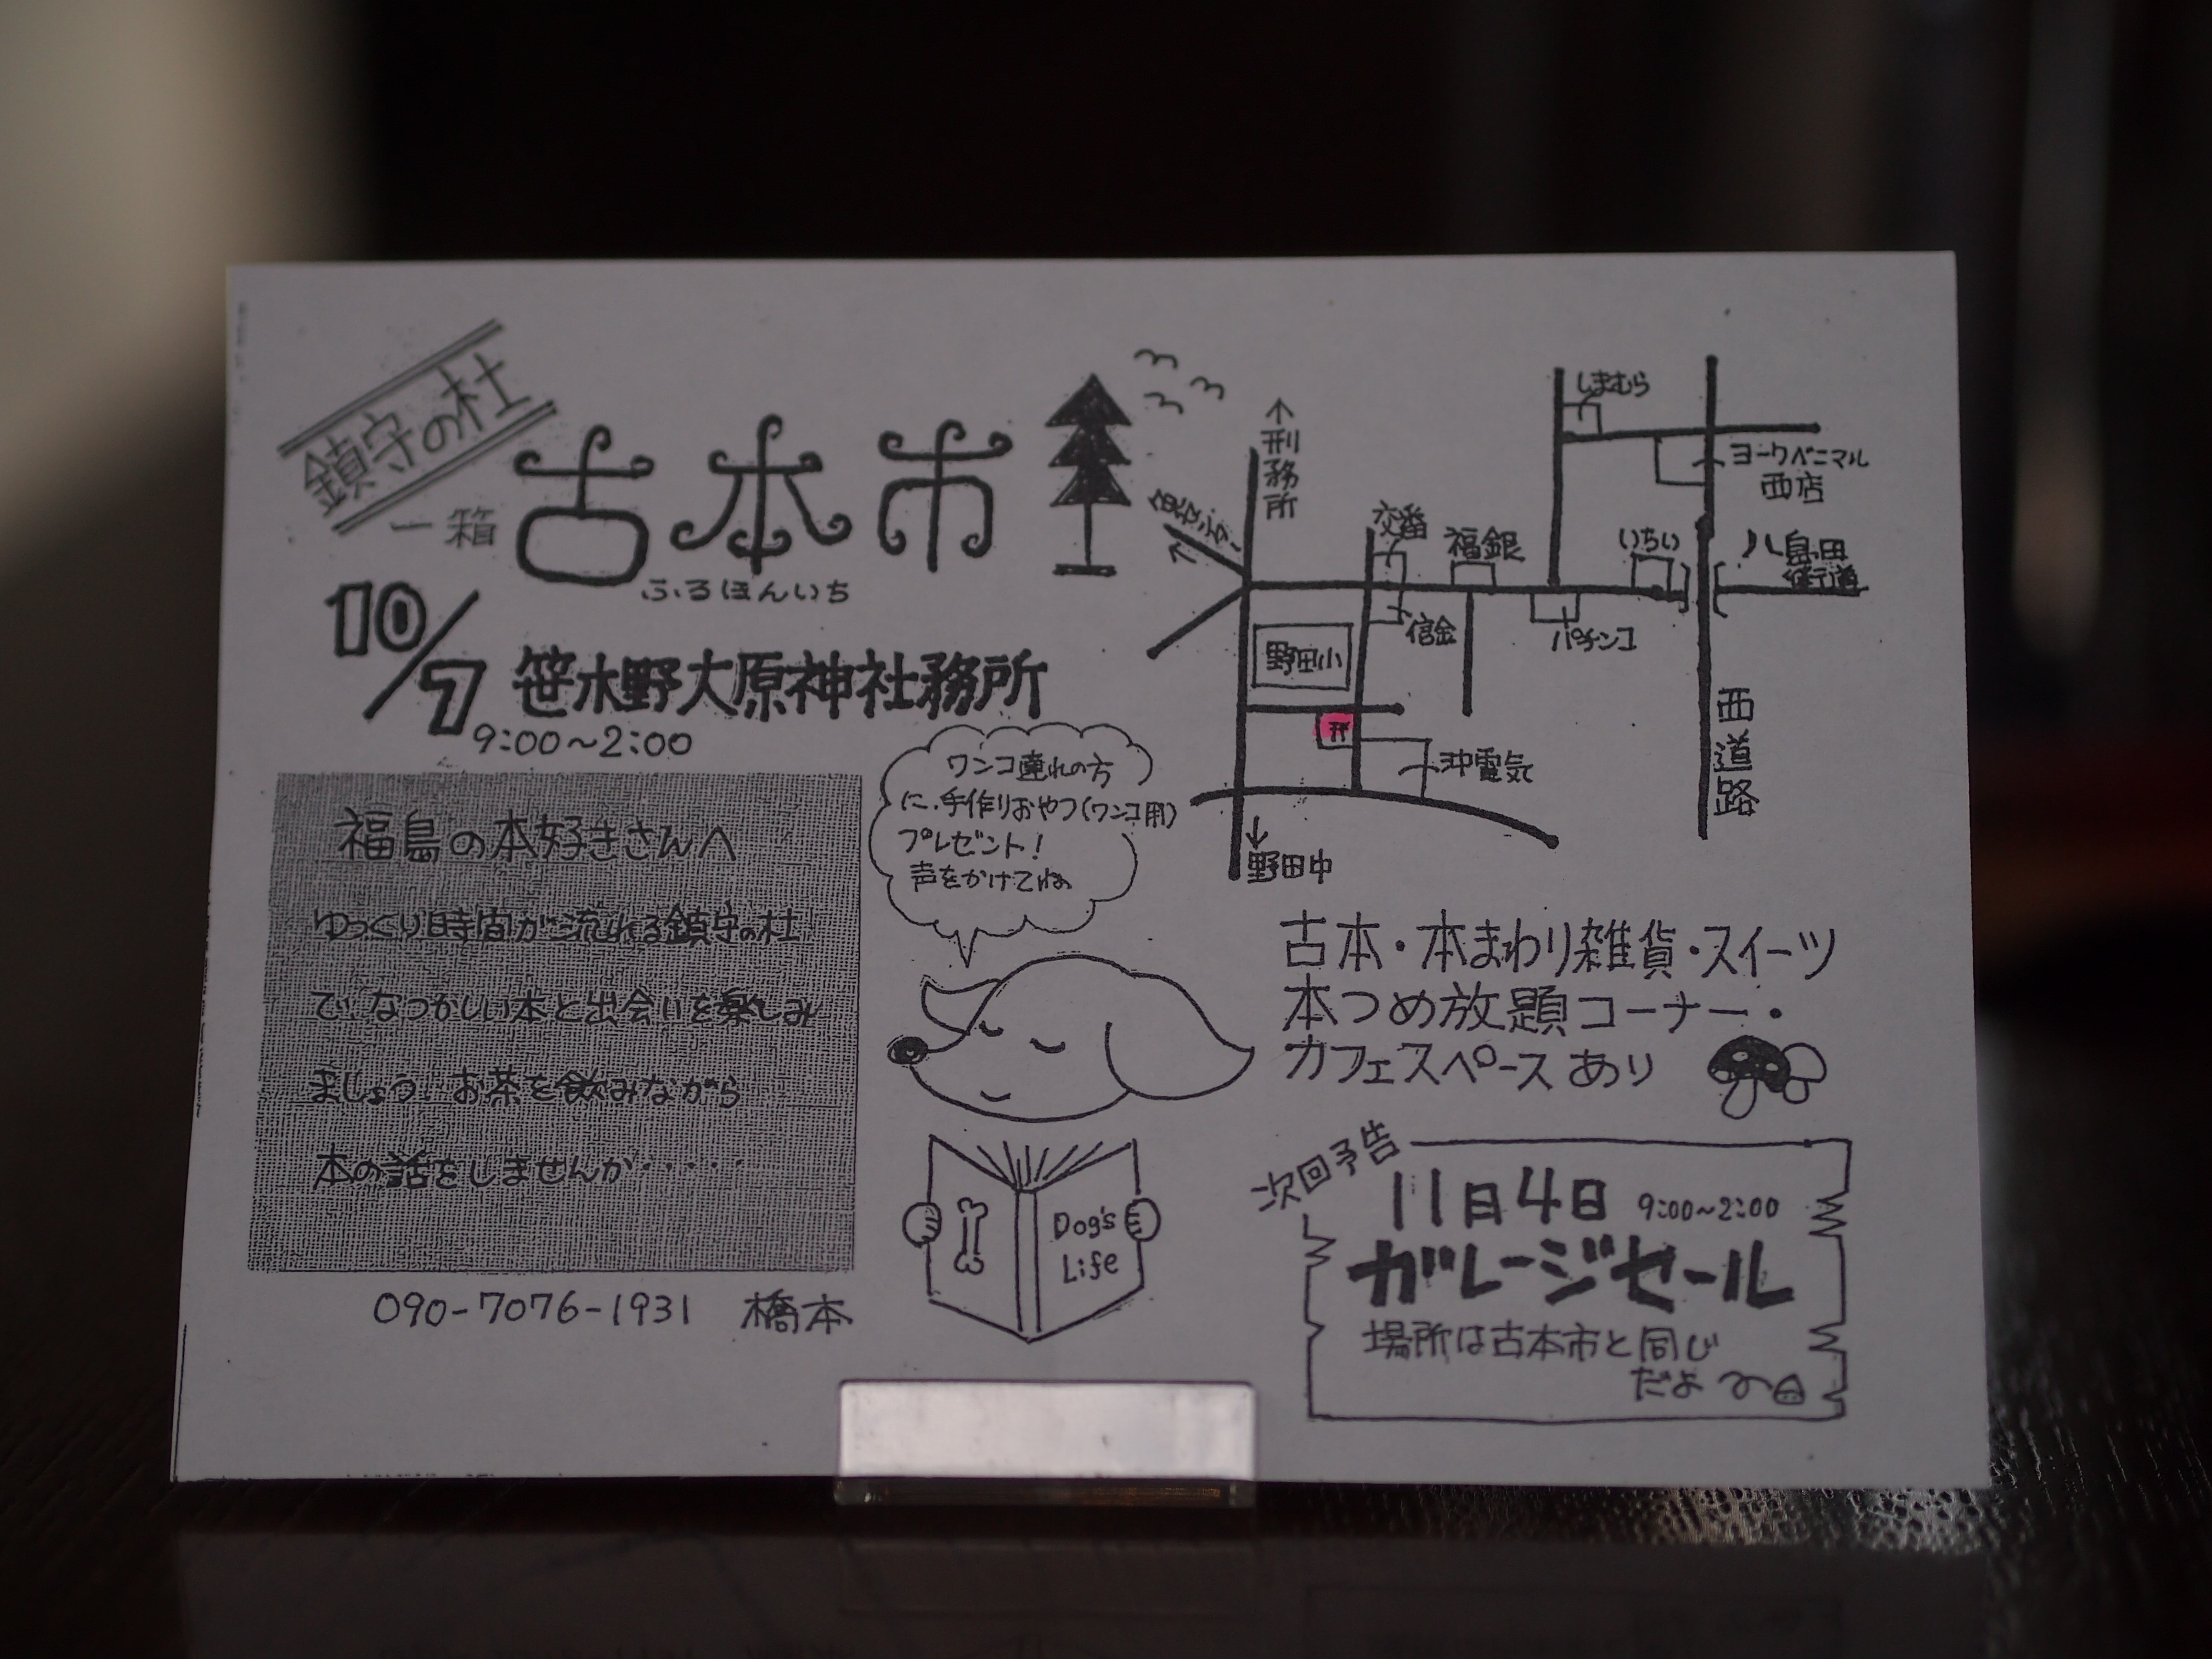 鎮守の杜
一箱
古本市
ふるほんいち
10/7
笹木野大原神社務所
9:00～2:00
福島の本好きさんへ
ゆっくり時間が流れる鎮守の杜
で、なつかしい本と出会いを楽しみ
ましょう。お茶を飲みながら
本の話をしませんか・・・・・
090-7076-1931 橋本
ワンコ連れの方
に、手作りおやつ(ワンコ用)
プレゼント!
声をかけてね
Dog's
Life
↑刑務所
交番
福銀
しまむら
ヨークベニマル
西店
いちい
八島田
街道
信金
パチンコ
野田小
沖電気
西道路
↓野田中
古本・本まわり雑貨・スイーツ
本つめ放題コーナー・
カフェスペースあり
次回予告
11月4日 9:00～2:00
ガレージセール
場所は古本市と同じ
だよ